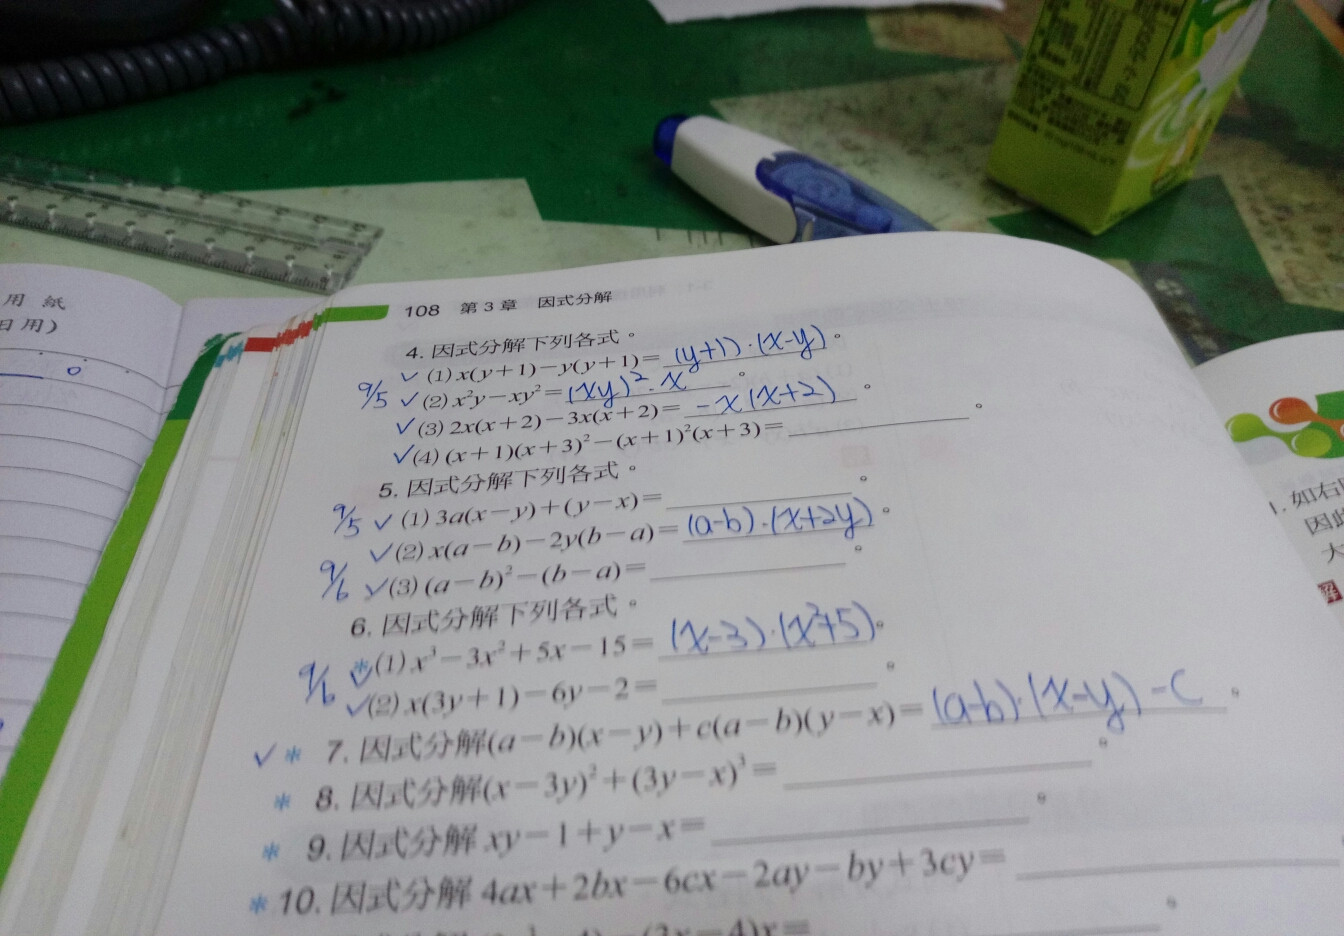 用 紙
日用)
108 第3章 因式分解
4. 因式分解下列各式。
✓ (1) x(y+1)-y(y+1)= (y+1)·(x-y)。
9/5 ✓ (2) x²y-xy²= (xy)²-x 。
✓ (3) 2x(x+2)-3x(x+2)= -x(x+2) 。
✓ (4) (x+1)(x+3)²-(x+1)²(x+3)= 。
5. 因式分解下列各式。
9/5 ✓ (1) 3a(x-y)+(y-x)= 。
✓ (2) x(a-b)-2y(b-a)= (a-b)·(x+2y) 。
9/6 ✓ (3) (a-b)²-(b-a)= 。
6. 因式分解下列各式。
9/6 * ✓ (1) x³-3x²+5x-15= (x-3)·(x²+5)。
✓ (2) x(3y+1)-6y-2= 。
✓ * 7. 因式分解(a-b)(x-y)+c(a-b)(y-x)= (a-b)·(x-y)-c 。
* 8. 因式分解(x-3y)²+(3y-x)³= 。
* 9. 因式分解 xy-1+y-x= 。
* 10. 因式分解 4ax+2bx-6cx-2ay-by+3cy=
1. 如右
因
大
解